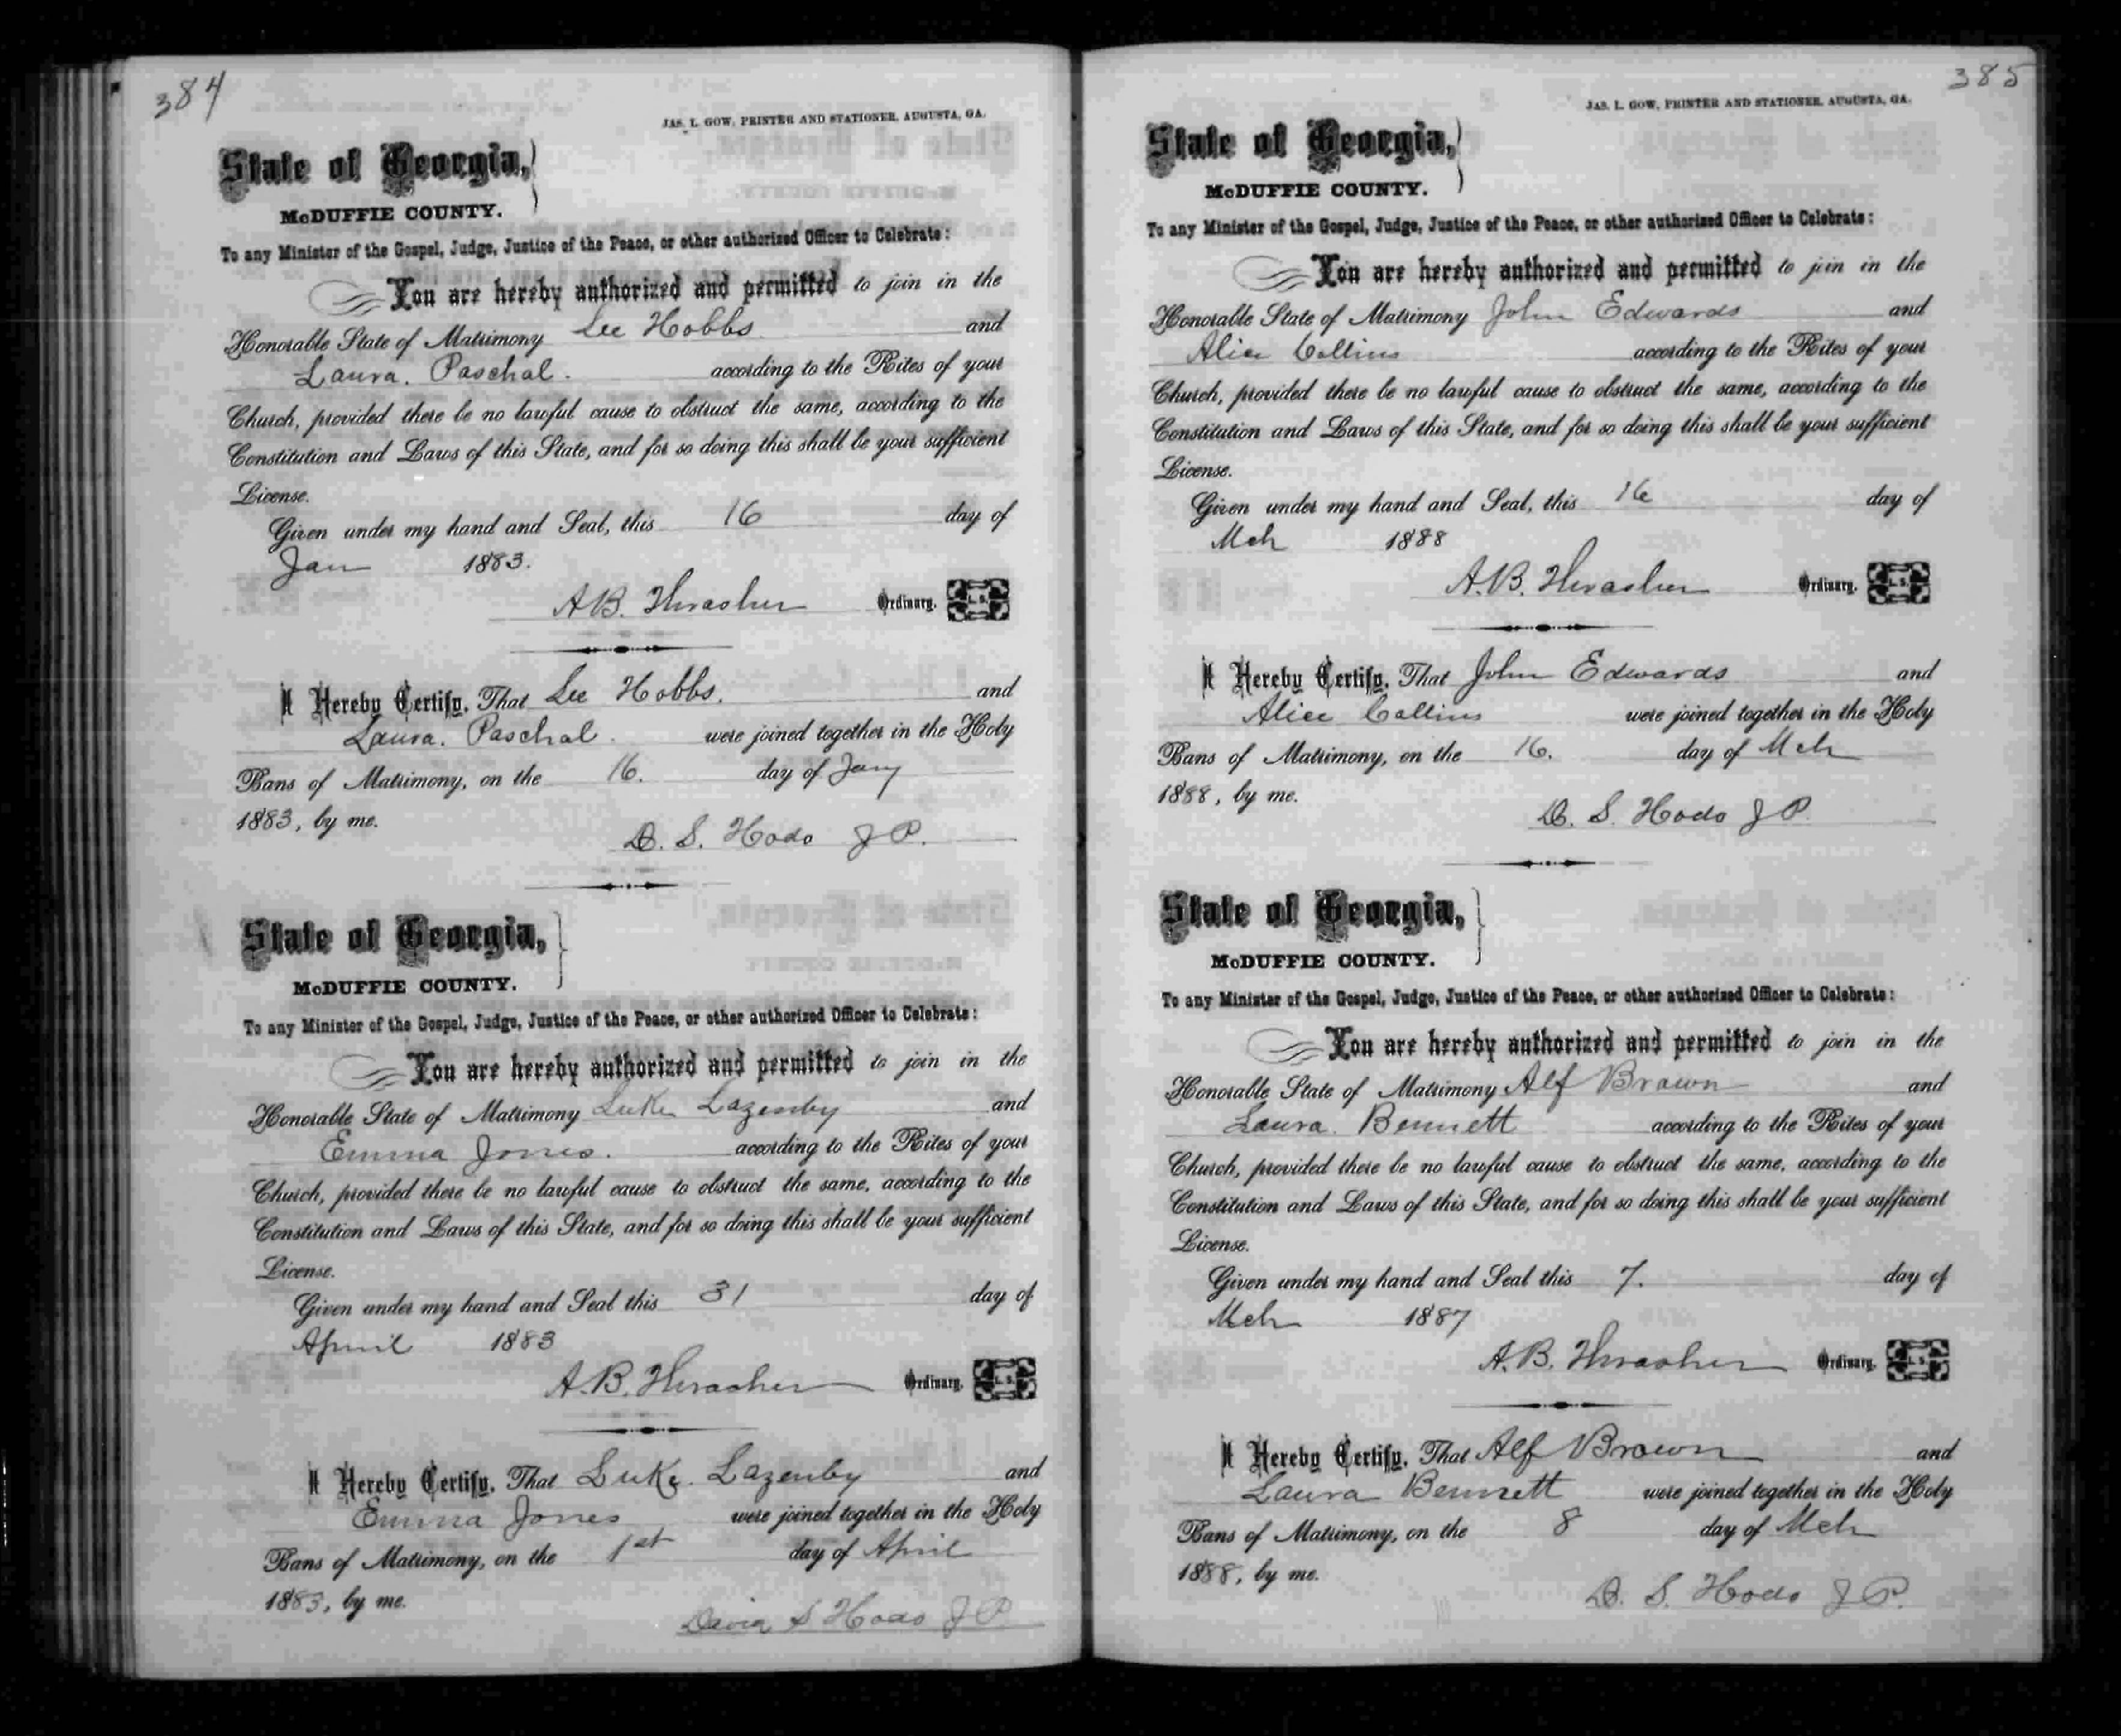 384
JAS. L. GOW, PRINTER AND STATIONER, AUGUSTA, GA.
State of Georgia,
McDUFFIE COUNTY.
To any Minister of the Gospel, Judge, Justice of the Peace, or other authorized Officer to Celebrate:
You are hereby authorized and permitted to join in the
Honorable State of Matrimony Lee Hobbs and
Laura. Paschal. according to the Rites of your
Church, provided there be no lawful cause to obstruct the same, according to the
Constitution and Laws of this State, and for so doing this shall be your sufficient
License.
Given under my hand and Seal, this 16 day of
Jan 1883.
A.B. Thrasher Ordinary. L.S.
I Hereby Certify, That Lee Hobbs. and
Laura. Paschal. were joined together in the Holy
Bans of Matrimony, on the 16. day of Jany
1883, by me.
D. S. Hodo J P.
State of Georgia,
McDUFFIE COUNTY.
To any Minister of the Gospel, Judge, Justice of the Peace, or other authorized Officer to Celebrate:
You are hereby authorized and permitted to join in the
Honorable State of Matrimony Luke Lazenby and
Emma Jones. according to the Rites of your
Church, provided there be no lawful cause to obstruct the same, according to the
Constitution and Laws of this State, and for so doing this shall be your sufficient
License.
Given under my hand and Seal this 31 day of
April 1883
A.B. Thrasher Ordinary. L.S.
I Hereby Certify, That Luke. Lazenby and
Emma Jones were joined together in the Holy
Bans of Matrimony, on the 1st day of April
1883, by me.
David S Hodo J P.
385
JAS. L. GOW, PRINTER AND STATIONER, AUGUSTA, GA.
State of Georgia,
McDUFFIE COUNTY.
To any Minister of the Gospel, Judge, Justice of the Peace, or other authorized Officer to Celebrate:
You are hereby authorized and permitted to join in the
Honorable State of Matrimony John Edwards and
Alice Collins according to the Rites of your
Church, provided there be no lawful cause to obstruct the same, according to the
Constitution and Laws of this State, and for so doing this shall be your sufficient
License.
Given under my hand and Seal, this 16 day of
Mch 1888
A.B. Thrasher Ordinary. L.S.
I Hereby Certify, That John Edwards and
Alice Collins were joined together in the Holy
Bans of Matrimony, on the 16. day of Mch
1888, by me.
D. S. Hodo J P.
State of Georgia,
McDUFFIE COUNTY.
To any Minister of the Gospel, Judge, Justice of the Peace, or other authorized Officer to Celebrate:
You are hereby authorized and permitted to join in the
Honorable State of Matrimony Alf Brown and
Laura. Bennett according to the Rites of your
Church, provided there be no lawful cause to obstruct the same, according to the
Constitution and Laws of this State, and for so doing this shall be your sufficient
License.
Given under my hand and Seal this 7. day of
Mch 1887
A.B. Thrasher Ordinary. L.S.
I Hereby Certify, That Alf Brown and
Laura Bennett were joined together in the Holy
Bans of Matrimony, on the 8 day of Mch
1888, by me.
D. S. Hodo J P.